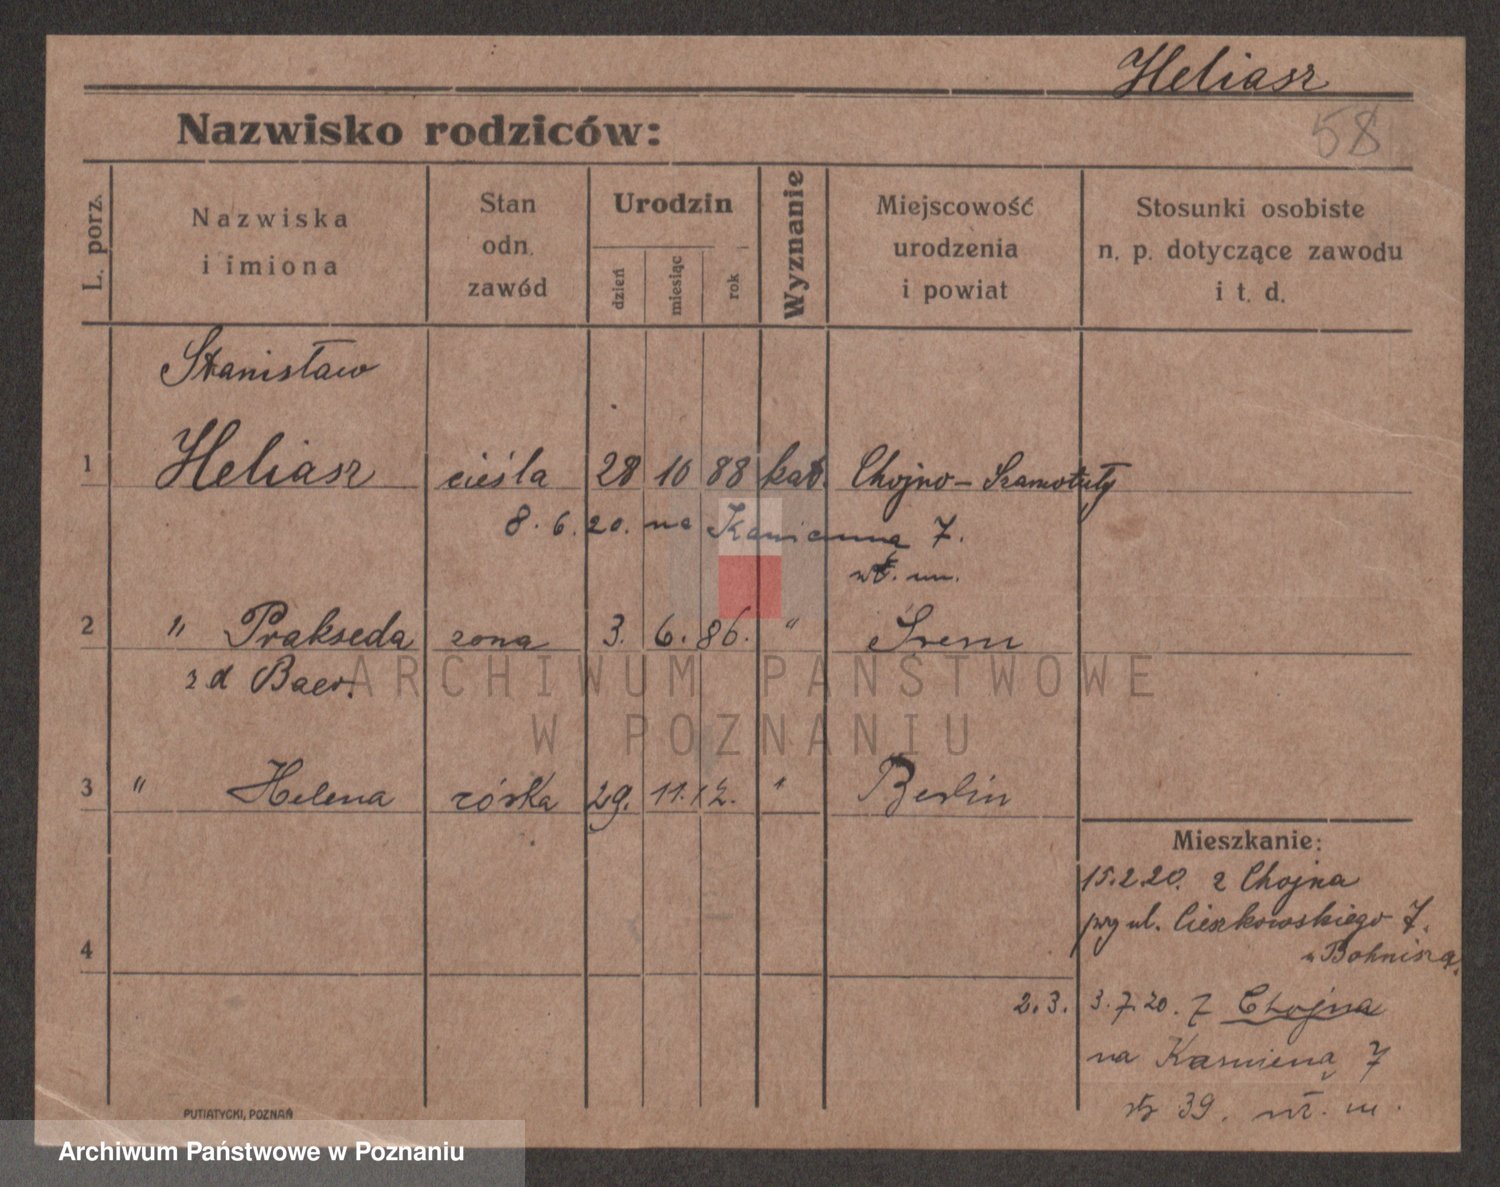 Heliasz
58
Nazwisko rodziców:
L. porz.
Nazwiska
i imiona
Stan
odn.
zawód
Urodzin
dzień
miesiąc
rok
Wyznanie
Miejscowość
urodzenia
i powiat
Stosunki osobiste
n. p. dotyczące zawodu
i t. d.
Stanisław
1 Heliasz cieśla 28 10 88 kat. Chojno - Szamotuły
8. 6. 20. na 7.
2 " Prakseda żona 3. 6. 86. " Śrem
z d
ARCHIWUM PAŃSTWOWE
W POZNANIU
3 " Helena córka 29. 11. 12. " Berlin
Mieszkanie:
15.2.20. z Chojna
przy ul. Cieszkowskiego 7.
4
2.3. 3.7.20. z Chojna
na Kamienną 7
39.
PUTIATYCKI, POZNAŃ
Archiwum Państwowe w Poznaniu